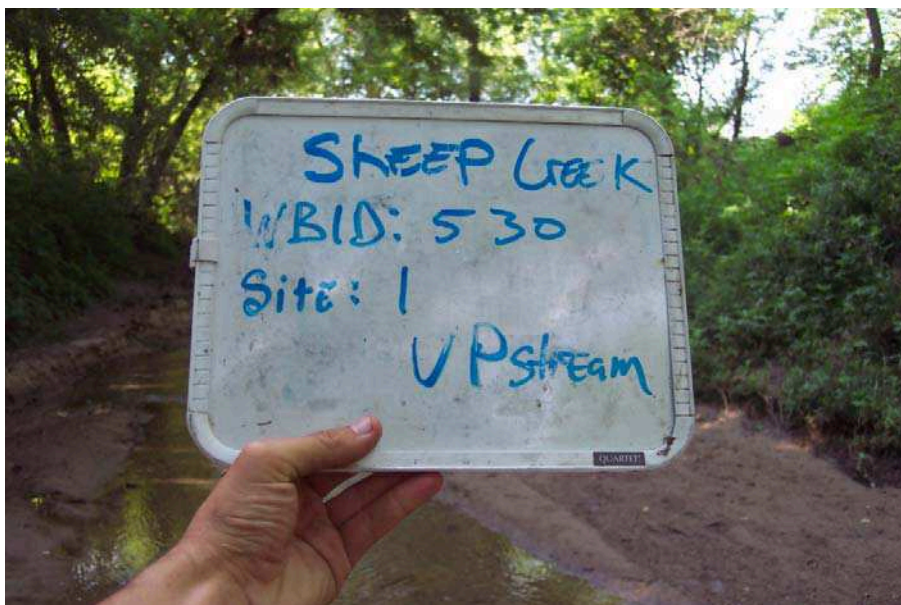 SheEP CreeK
WBID: 530
Site: 1
UPstream
QUARTET